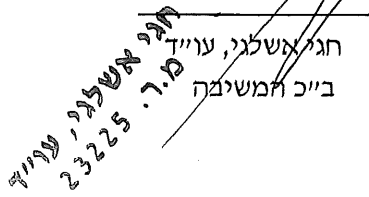 חגי אשלגי, עו"ד
ב"כ המשיבה
חגי אשלגי, עו"ד
מ.ר. 23225